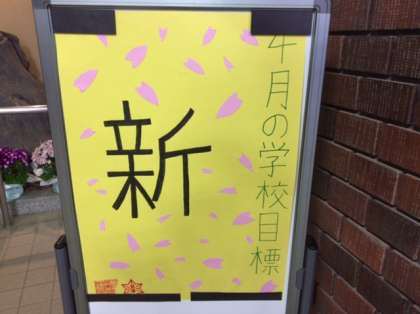 4月の学校目標
新